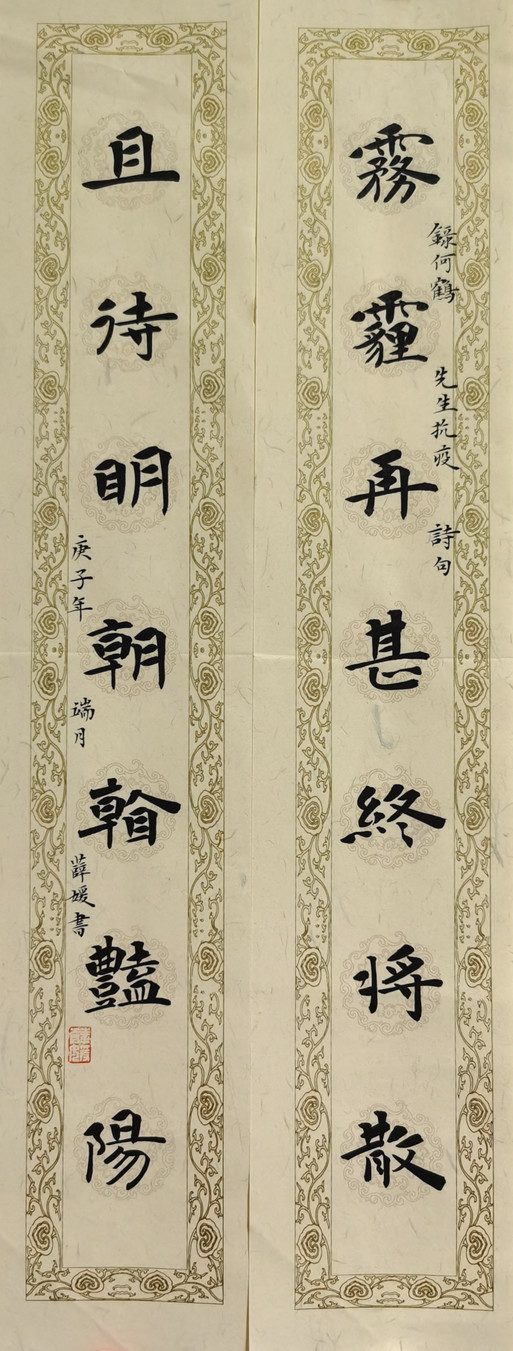 霧霾再甚終将散
錄何鶴 先生抗疫 詩句
且待明朝豔陽
庚子年 端月 薛媛書